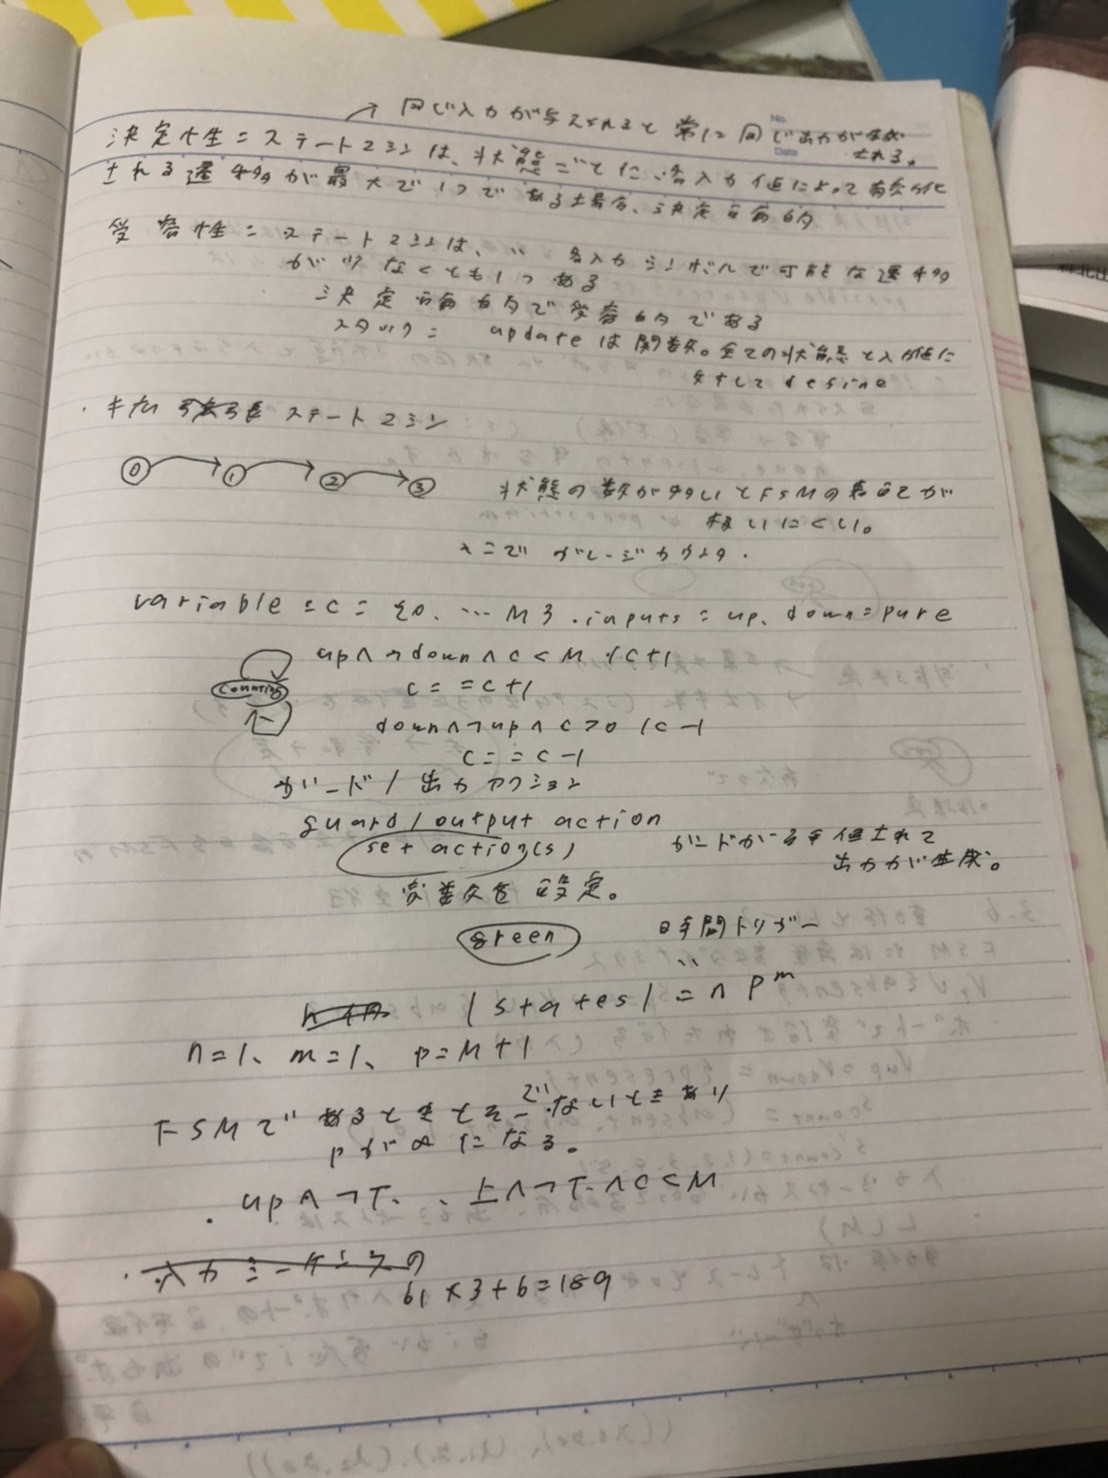 → 同じ入力が与えられると常に同じ出力が生成される。
No.
Date
決定性=ステートマシンは、状態ごとに、各入力値によって有効化
される遷移が最大で1つである場合、決定論的
受容性=ステートマシンは、〃 各入力シンボルで可能な遷移
が少なくとも1つある
決定論的で受容的である
update は関数。全ての状態と入力値に
対して define
・拡張ステートマシン
0 1 2 3
状態の数が多いとFSMの表記が
扱いにくい。
そこで ガレージカウンタ.
variable = c = {0, … M} . inputs = up, down = pure
up ∧ ¬down ∧ c < M / c+1
counting
c := c+1
down ∧ ¬up ∧ c > 0 / c-1
c := c-1
ガード / 出力アクション
guard / output action
set action(s)
ガードが評価されて
出力が生成。
変数を設定。
green
時間トリガー
|states| = n p^m
n=1、m=1、p=M+1
FSMであるときとそうでないときあり
pが∞になる。
・up ∧ ¬T.
∧ ¬T ∧ C<M
・入力シーケンスの
61 × 3 + 6 = 189